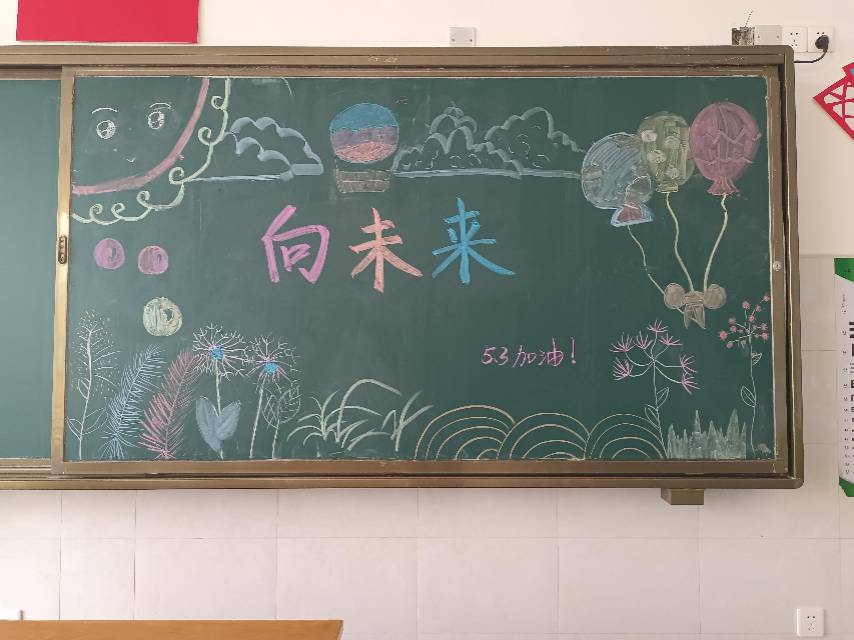 向未来
5.3加油!